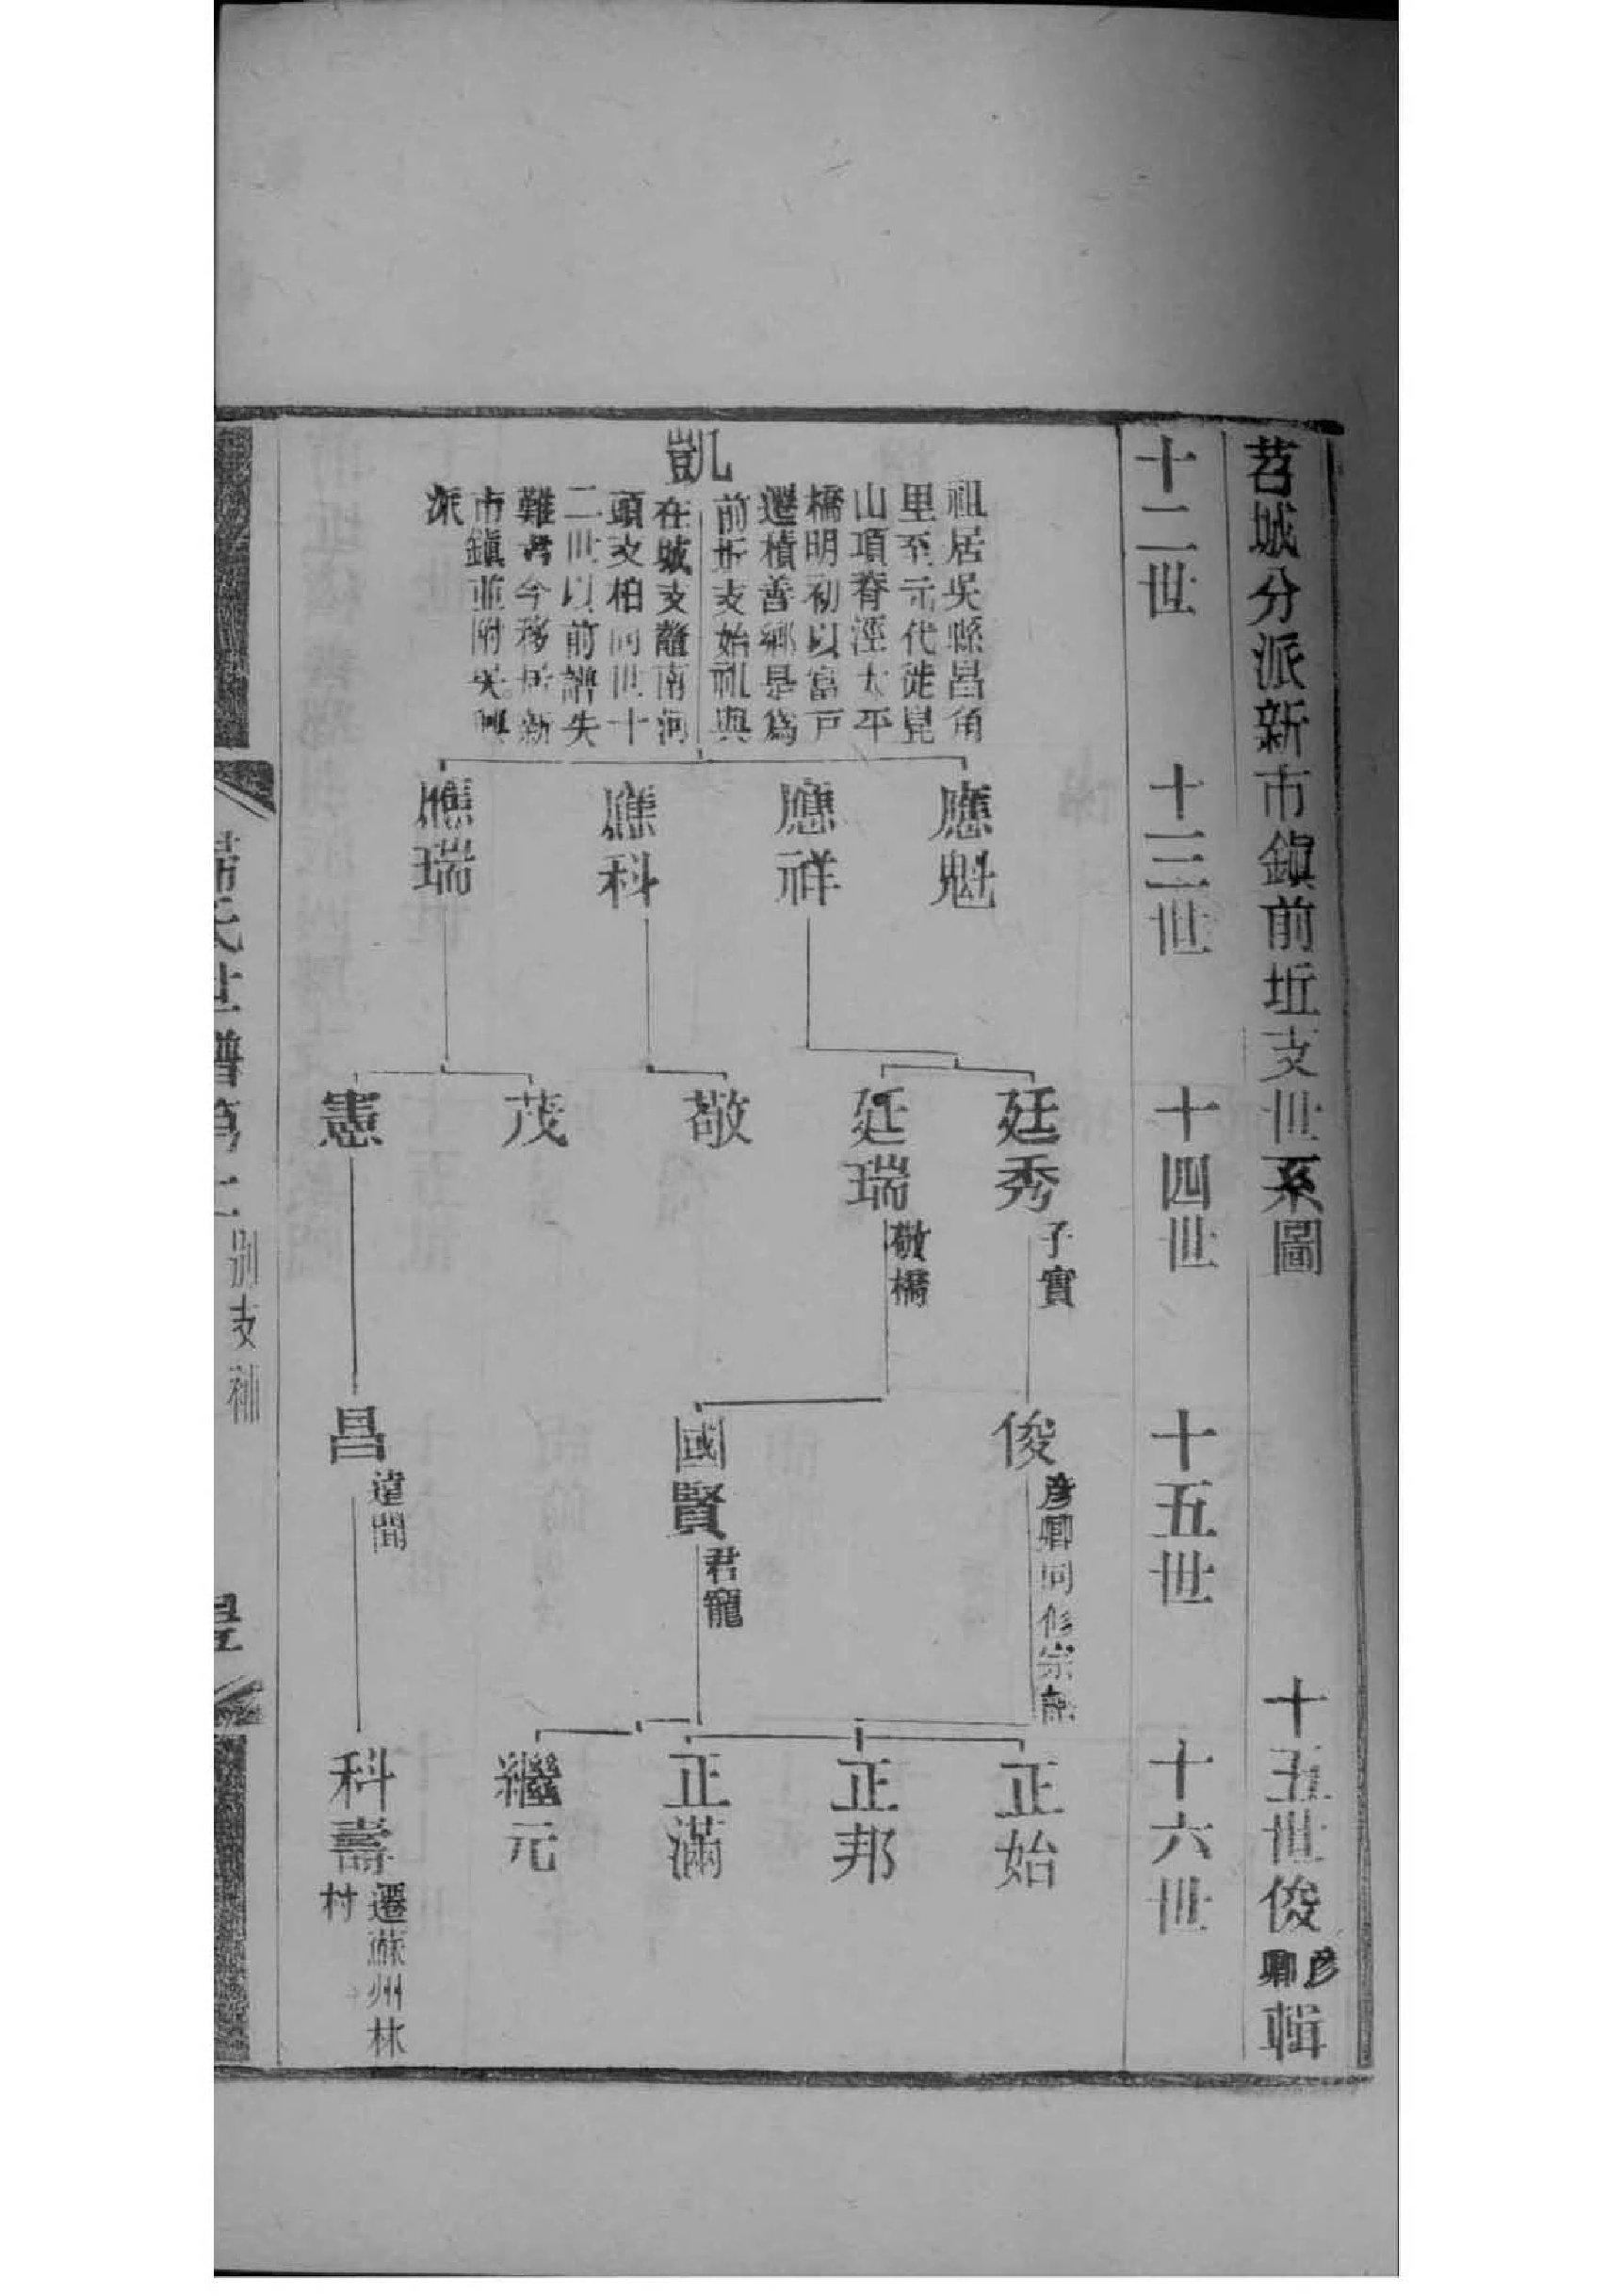 苕城分派新市鎮前坵支世系圖
十五世俊彥卿輯
十二世
十三世
十四世
十五世
十六世
凱
祖居吳縣昌角
里至元代徙崑
山項脊涇太平
橋明初以富戸
遷積善鄉是爲
前坵支始祖與
在城支 南潯
頭支柏同世十
二世以前譜失
難考今移居新
市鎮並附吳興
派
應魁
應祥
應科
應瑞
廷秀
子實
廷瑞
敬橋
敬
茂
憲
俊
彥卿同修宗譜
國賢
君寵
昌
達閭
正始
正邦
正滿
繼元
科壽
遷蘇州林
村
氏世譜第十
別支補